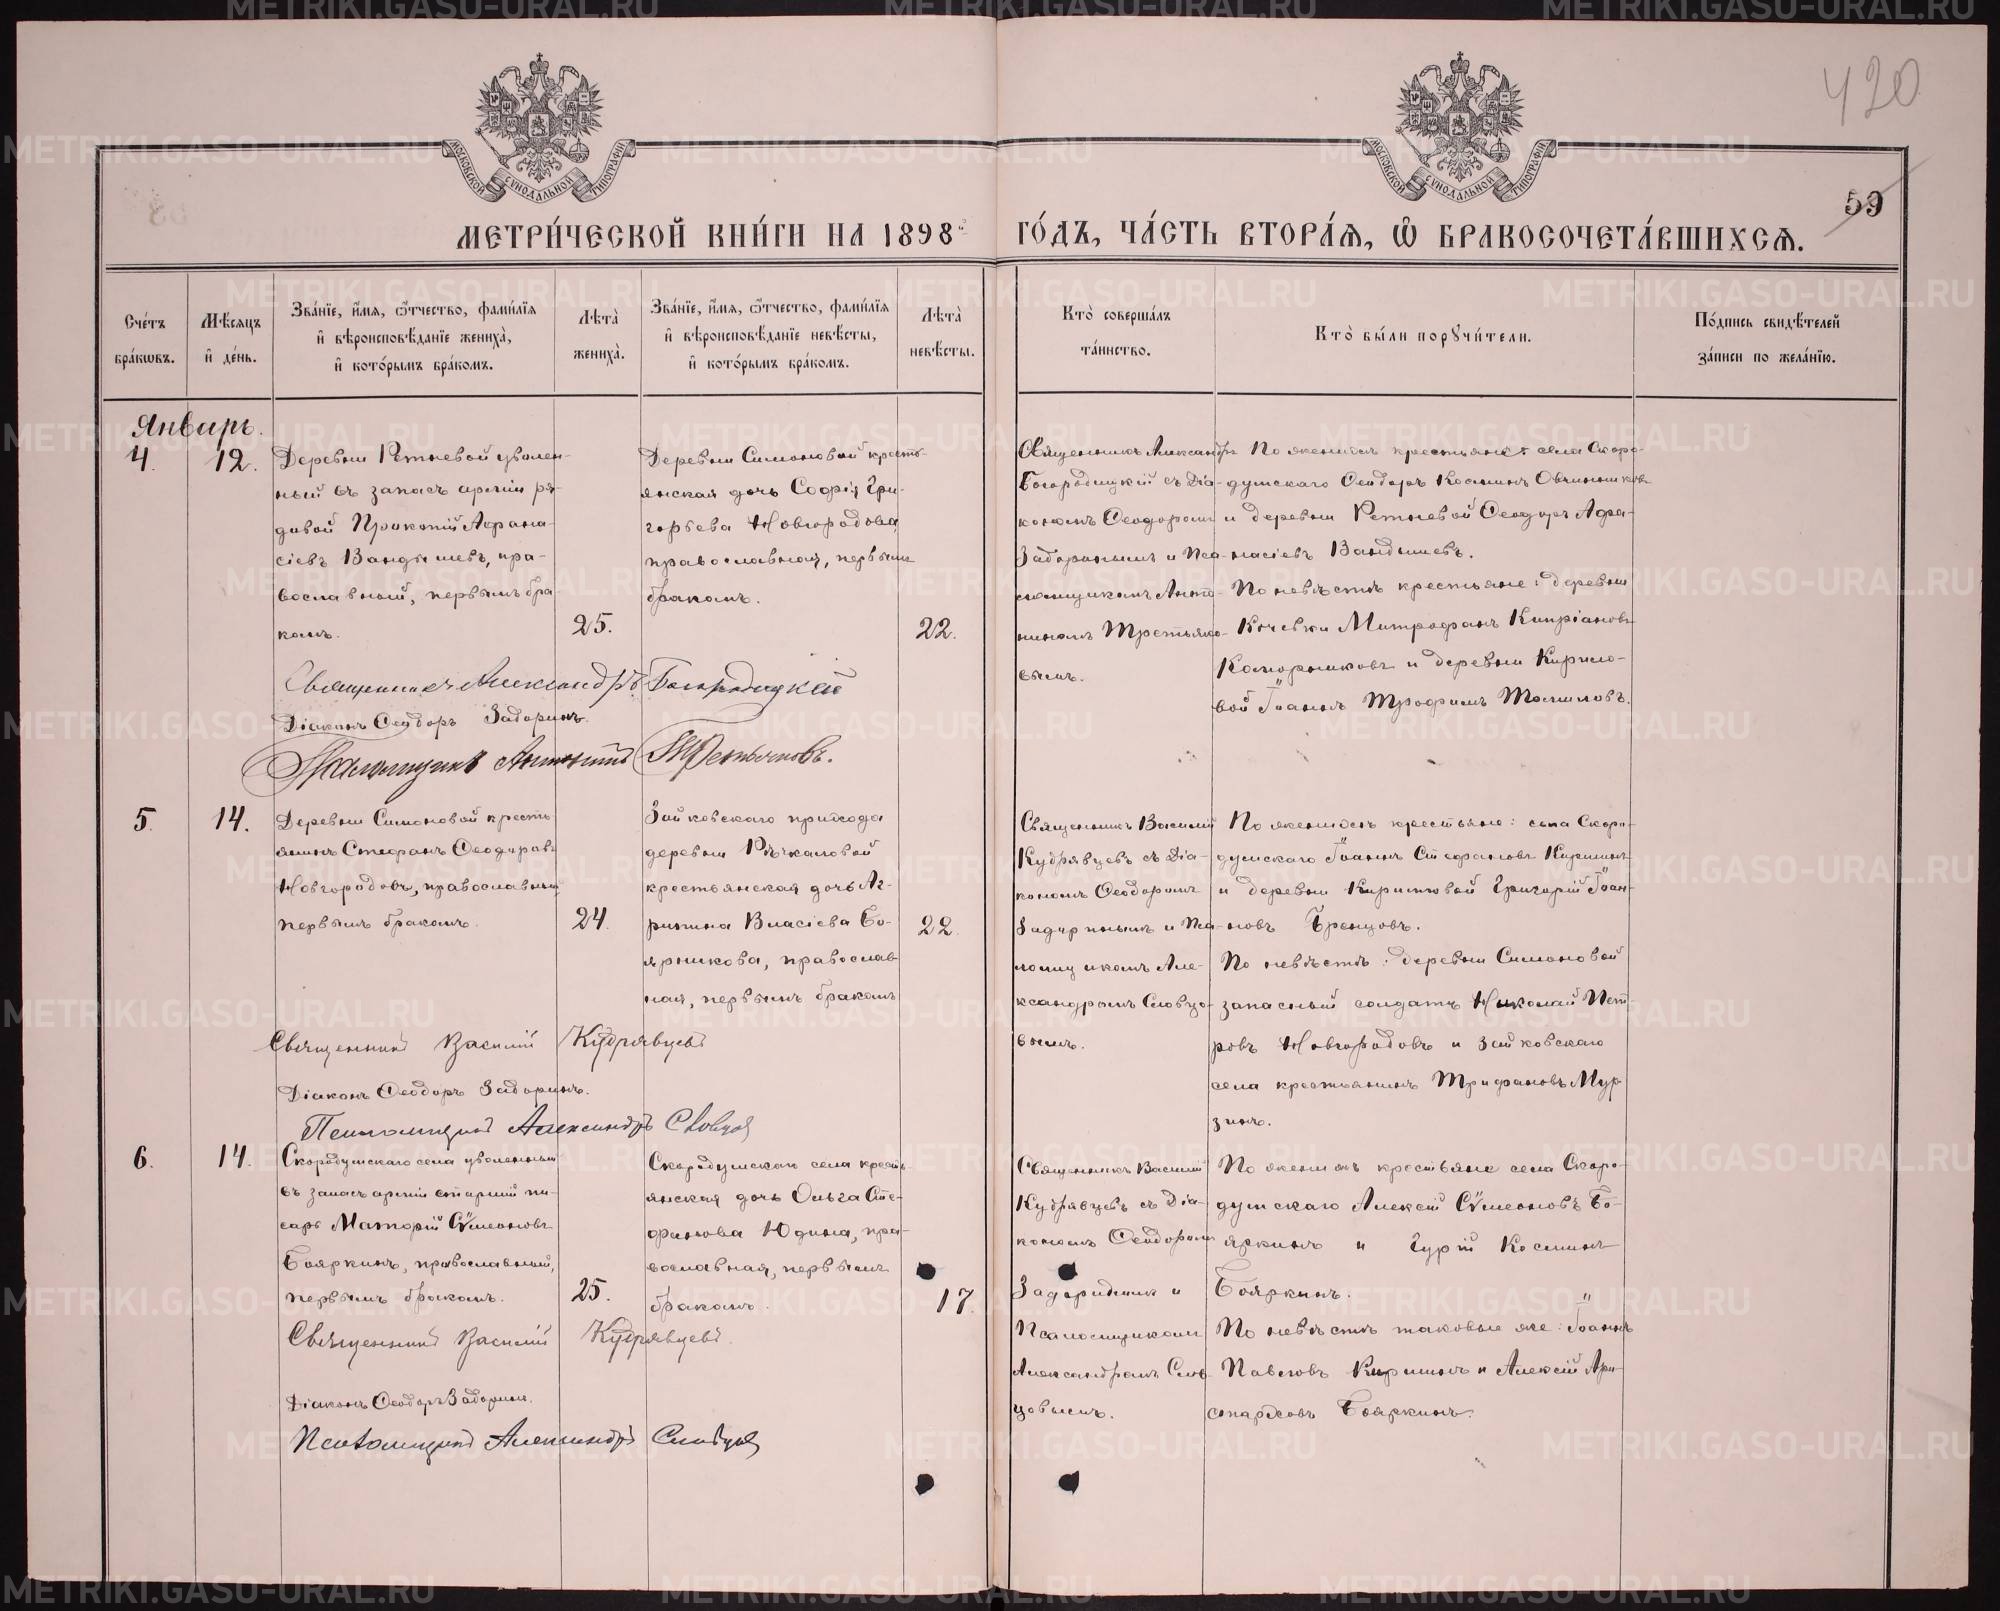 420
59
МОСКОВСКОЙ СѴНОДАЛЬНОЙ ТИПОГРАФІИ
МОСКОВСКОЙ СѴНОДАЛЬНОЙ ТИПОГРАФІИ
МЕТРИ́ЧЕСКОЙ КНИ́ГИ НА 1898 ГО́ДЪ, ЧА́СТЬ ВТОРА́Я, Ѽ БРАКОСОЧЕТА́ВШИХСЯ.
Сче́тъ бра́кѡвъ.
Мѣ́сяцъ и҆ де́нь.
Зва́нїе, и҆́мя, ѻ҆́тчество, фами́лїя
и҆ вѣроисповѣ́данїе жениха̀,
и҆ кото́рымъ бра́комъ.
Лѣта̀ жениха̀.
Зва́нїе, и҆́мя, ѻ҆́тчество, фами́лїя
и҆ вѣроисповѣ́данїе невѣ́сты,
и҆ кото́рымъ бра́комъ.
Лѣта̀ невѣ́сты.
Кто̀ соверша́лъ
та́инство.
Кто̀ бы́ли порꙋчи́тели.
По́дпись свидѣ́телей
за́писи по жела́нїю.
Январь.
4.
12.
Деревни Ретневой уволен-
ный въ запасъ арміи ря-
довой Прокопій Афана-
сіевъ Вандышевъ, пра-
вославный, первымъ бра-
комъ.
25.
Деревни Симоновой кресть-
янская дочь Софія Гри-
горьева Новгородова,
православная, первымъ
бракомъ.
22.
Священникъ Александръ
Богородицкій съ діа-
кономъ Ѳеодоромъ
Задоринымъ и пса-
ломщикомъ Анто-
ниномъ Третьяко-
вымъ.
По женихѣ крестьяне: села Скоро-
думскаго Ѳеодоръ Косминъ Овчинниковъ
и деревни Ретневой Ѳеодоръ Афа-
насіевъ Вандышевъ.
По невѣстѣ крестьяне: деревни
Кочевки Митрофанъ Кипріановъ
Коморниковъ и деревни Кирило-
вой Іоаннъ Трофимъ Томиловъ.
Священникъ Александръ Богородицкій
Діаконъ Ѳеодоръ Задоринъ.
Псаломщикъ Антонинъ Третьяковъ.
5.
14.
Деревни Симоновой кресть-
янинъ Стефанъ Ѳеодоровъ
Новгородовъ, православный,
первымъ бракомъ.
24.
Зайковскаго прихода
деревни Рѣчкаловой
крестьянская дочь Аг-
рипина Власіева Бо-
ярникова, православ-
ная, первымъ бракомъ
22.
Священникъ Василій
Кудрявцевъ съ діа-
кономъ Ѳеодоромъ
Задоринымъ и пса-
ломщикомъ Але-
ксандромъ Словцо-
вымъ.
По женихѣ крестьяне: села Скоро-
думскаго Іоаннъ Стефановъ Киршинъ
и деревни Кириловой Григорій Іоан-
новъ Бренцовъ.
По невѣстѣ: деревни Симоновой
запасный солдатъ Николай Пет-
ровъ Новгородовъ и Зайковскаго
села крестьянинъ Трифановъ Мур-
зинъ.
Священникъ Василій Кудрявцевъ
Діаконъ Ѳеодоръ Задоринъ.
Псаломщикъ Александръ Словцовъ
6.
14.
Скородумскаго села уволенный
въ запасъ арміи старшій пи-
сарь Матѳій Сѵмеоновъ
Бояркинъ, православный,
первымъ бракомъ.
25.
Скородумскаго села кресть-
янская дочь Ольга Сте-
фанова Юдина, пра-
вославная, первымъ
бракомъ.
17.
Священникъ Василій
Кудрявцевъ съ діа-
кономъ Ѳеодоромъ
Задоринымъ и
псаломщикомъ
Александромъ Слов-
цовымъ.
По женихѣ крестьяне села Скоро-
думскаго Алексій Сѵмеоновъ Бо-
яркинъ и Гурій Косминъ
Бояркинъ.
По невѣстѣ таковые же: Іоаннъ
Павловъ Киршинъ и Алексій Ари-
старховъ Бояркинъ.
Священникъ Василій Кудрявцевъ.
Діаконъ Ѳеодоръ Задоринъ.
Псаломщикъ Александръ Словцовъ
METRIKI.GASO-URAL.RU